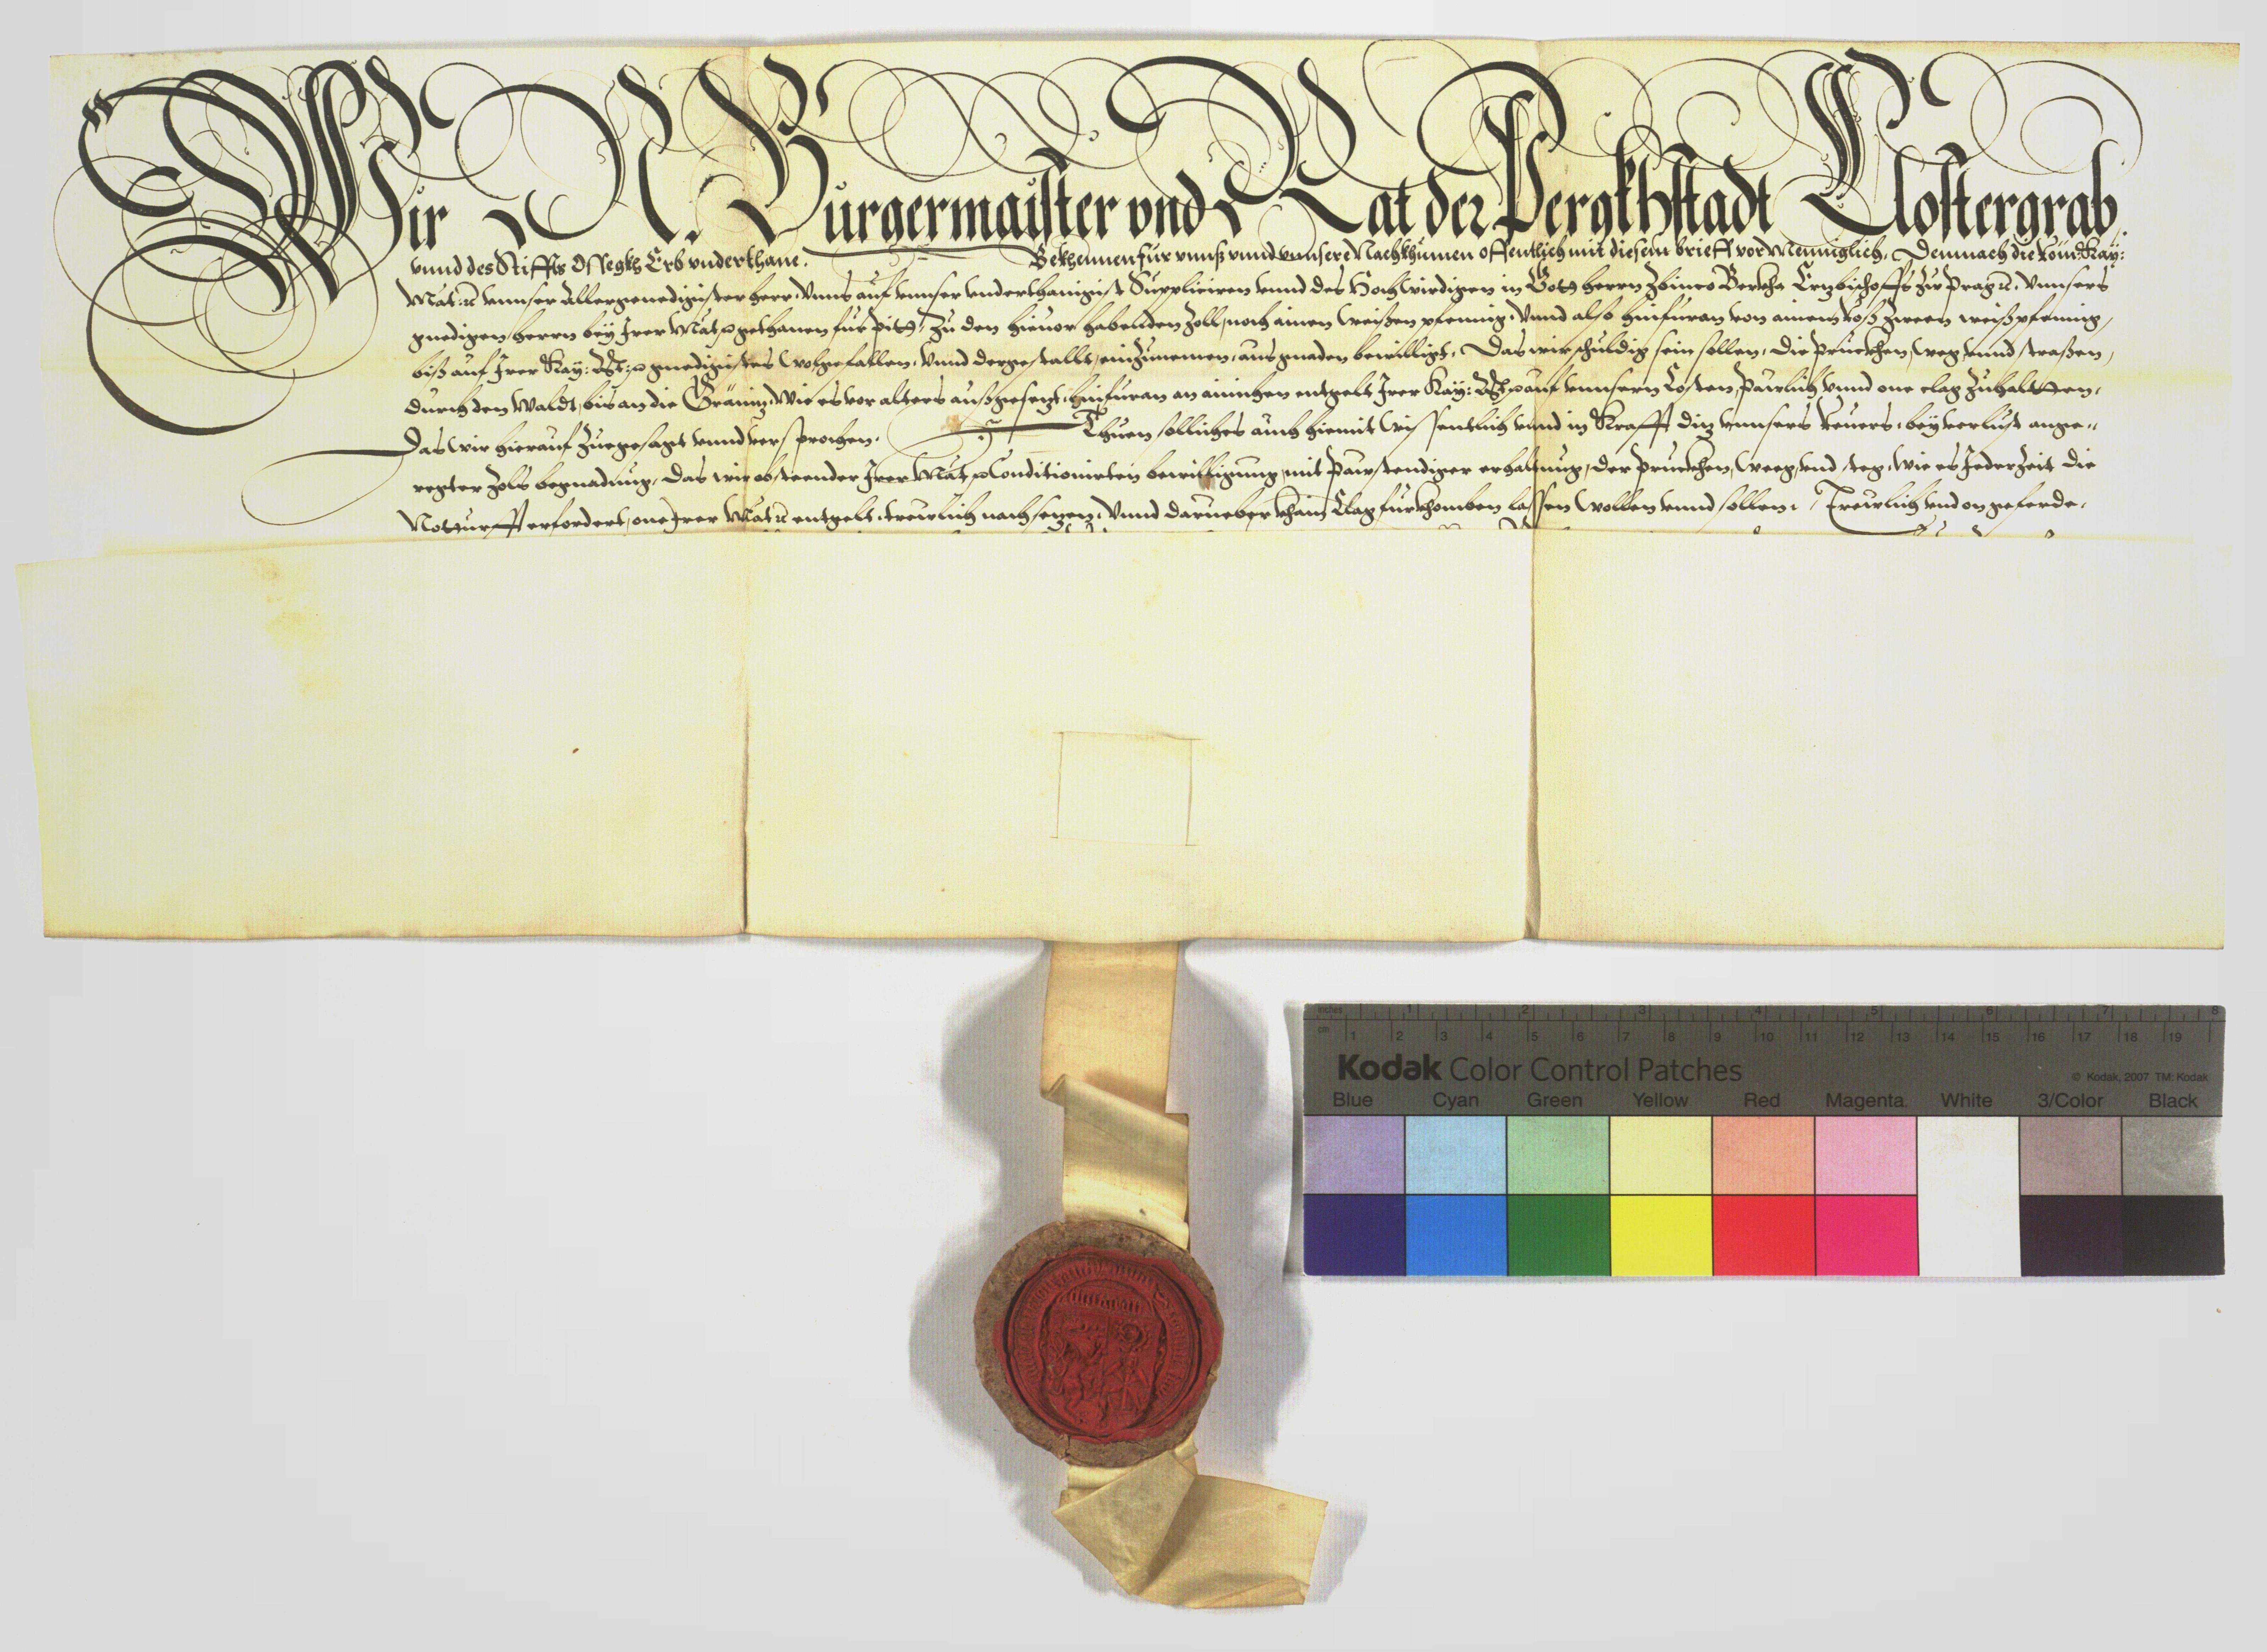 Wir N. Burgermaister vnd Rat der Pergkhstadt Clostergrab.
vnnd des Stiffts Ossegkh Erb vnderthane. Bekhennen für vnnß vnnd vnnsere Nachkhumen offentlich mit diesem brieff vor Menniglich, Demnach die Röm: Kay:
Mat: ꝛc vnnser Allergenedigister herr, Vnns auf vnnser vnderthanigist Suppliciren vnnd des Hochwirdigen in Gott herrn Zbinco Berkha Ertzbischoffs zur Prag ꝛc, Vnnsers
gnedigen herrn bey Irer Mat: ꝛc gethanen fürpitt, zu den hieuor habenden Zoll, noch ainen weißen pfennig, Vnnd also hinfuran von ainem Roß zween weißpfennig,
biß auf Irer Kay: Mt: ꝛc gnedigistes wolgefallen, Vnnd dergestallt, einzunemen, aus gnaden bewilligt, Das wir schuldig sein sollen, die Pruckhen, weg vnnd strassen,
durch den Waldt, bis an die Gränitz, Wie es vor alters außgesetzt, hinfuran an ainichen entgelt Irer Kay: Mt: ꝛc auf vnnsern Costen, Paulich vnnd one clag zuhaltten,
Das wir hierauf zuegesagt vnnd versprochen. Thuen solliches auch hiemit wissentlich vnnd in Krafft ditz vnnsers Reuers, bey verlust ange-
regter Zols begnadung, Das wir obsteender Irer Mat: ꝛc Conditionirten bewilligung, mit Paustendiger erhaltnug, der Pruckhen, Weeg, vnd steg, wie es Jederzeit die
Notturfft erfordert, one Irer Mat: ꝛc entgelt, treulich nachsetzen, Vnnd darueber khain Clag fürkhomben lassen wollen vnnd sollen, Treulich vnd on geferde,
inches 1 2 3 4 5 6 7 8
cm 1 2 3 4 5 6 7 8 9 10 11 12 13 14 15 16 17 18 19
Kodak Color Control Patches © Kodak, 2007 TM: Kodak
Blue Cyan Green Yellow Red Magenta White 3/Color Black